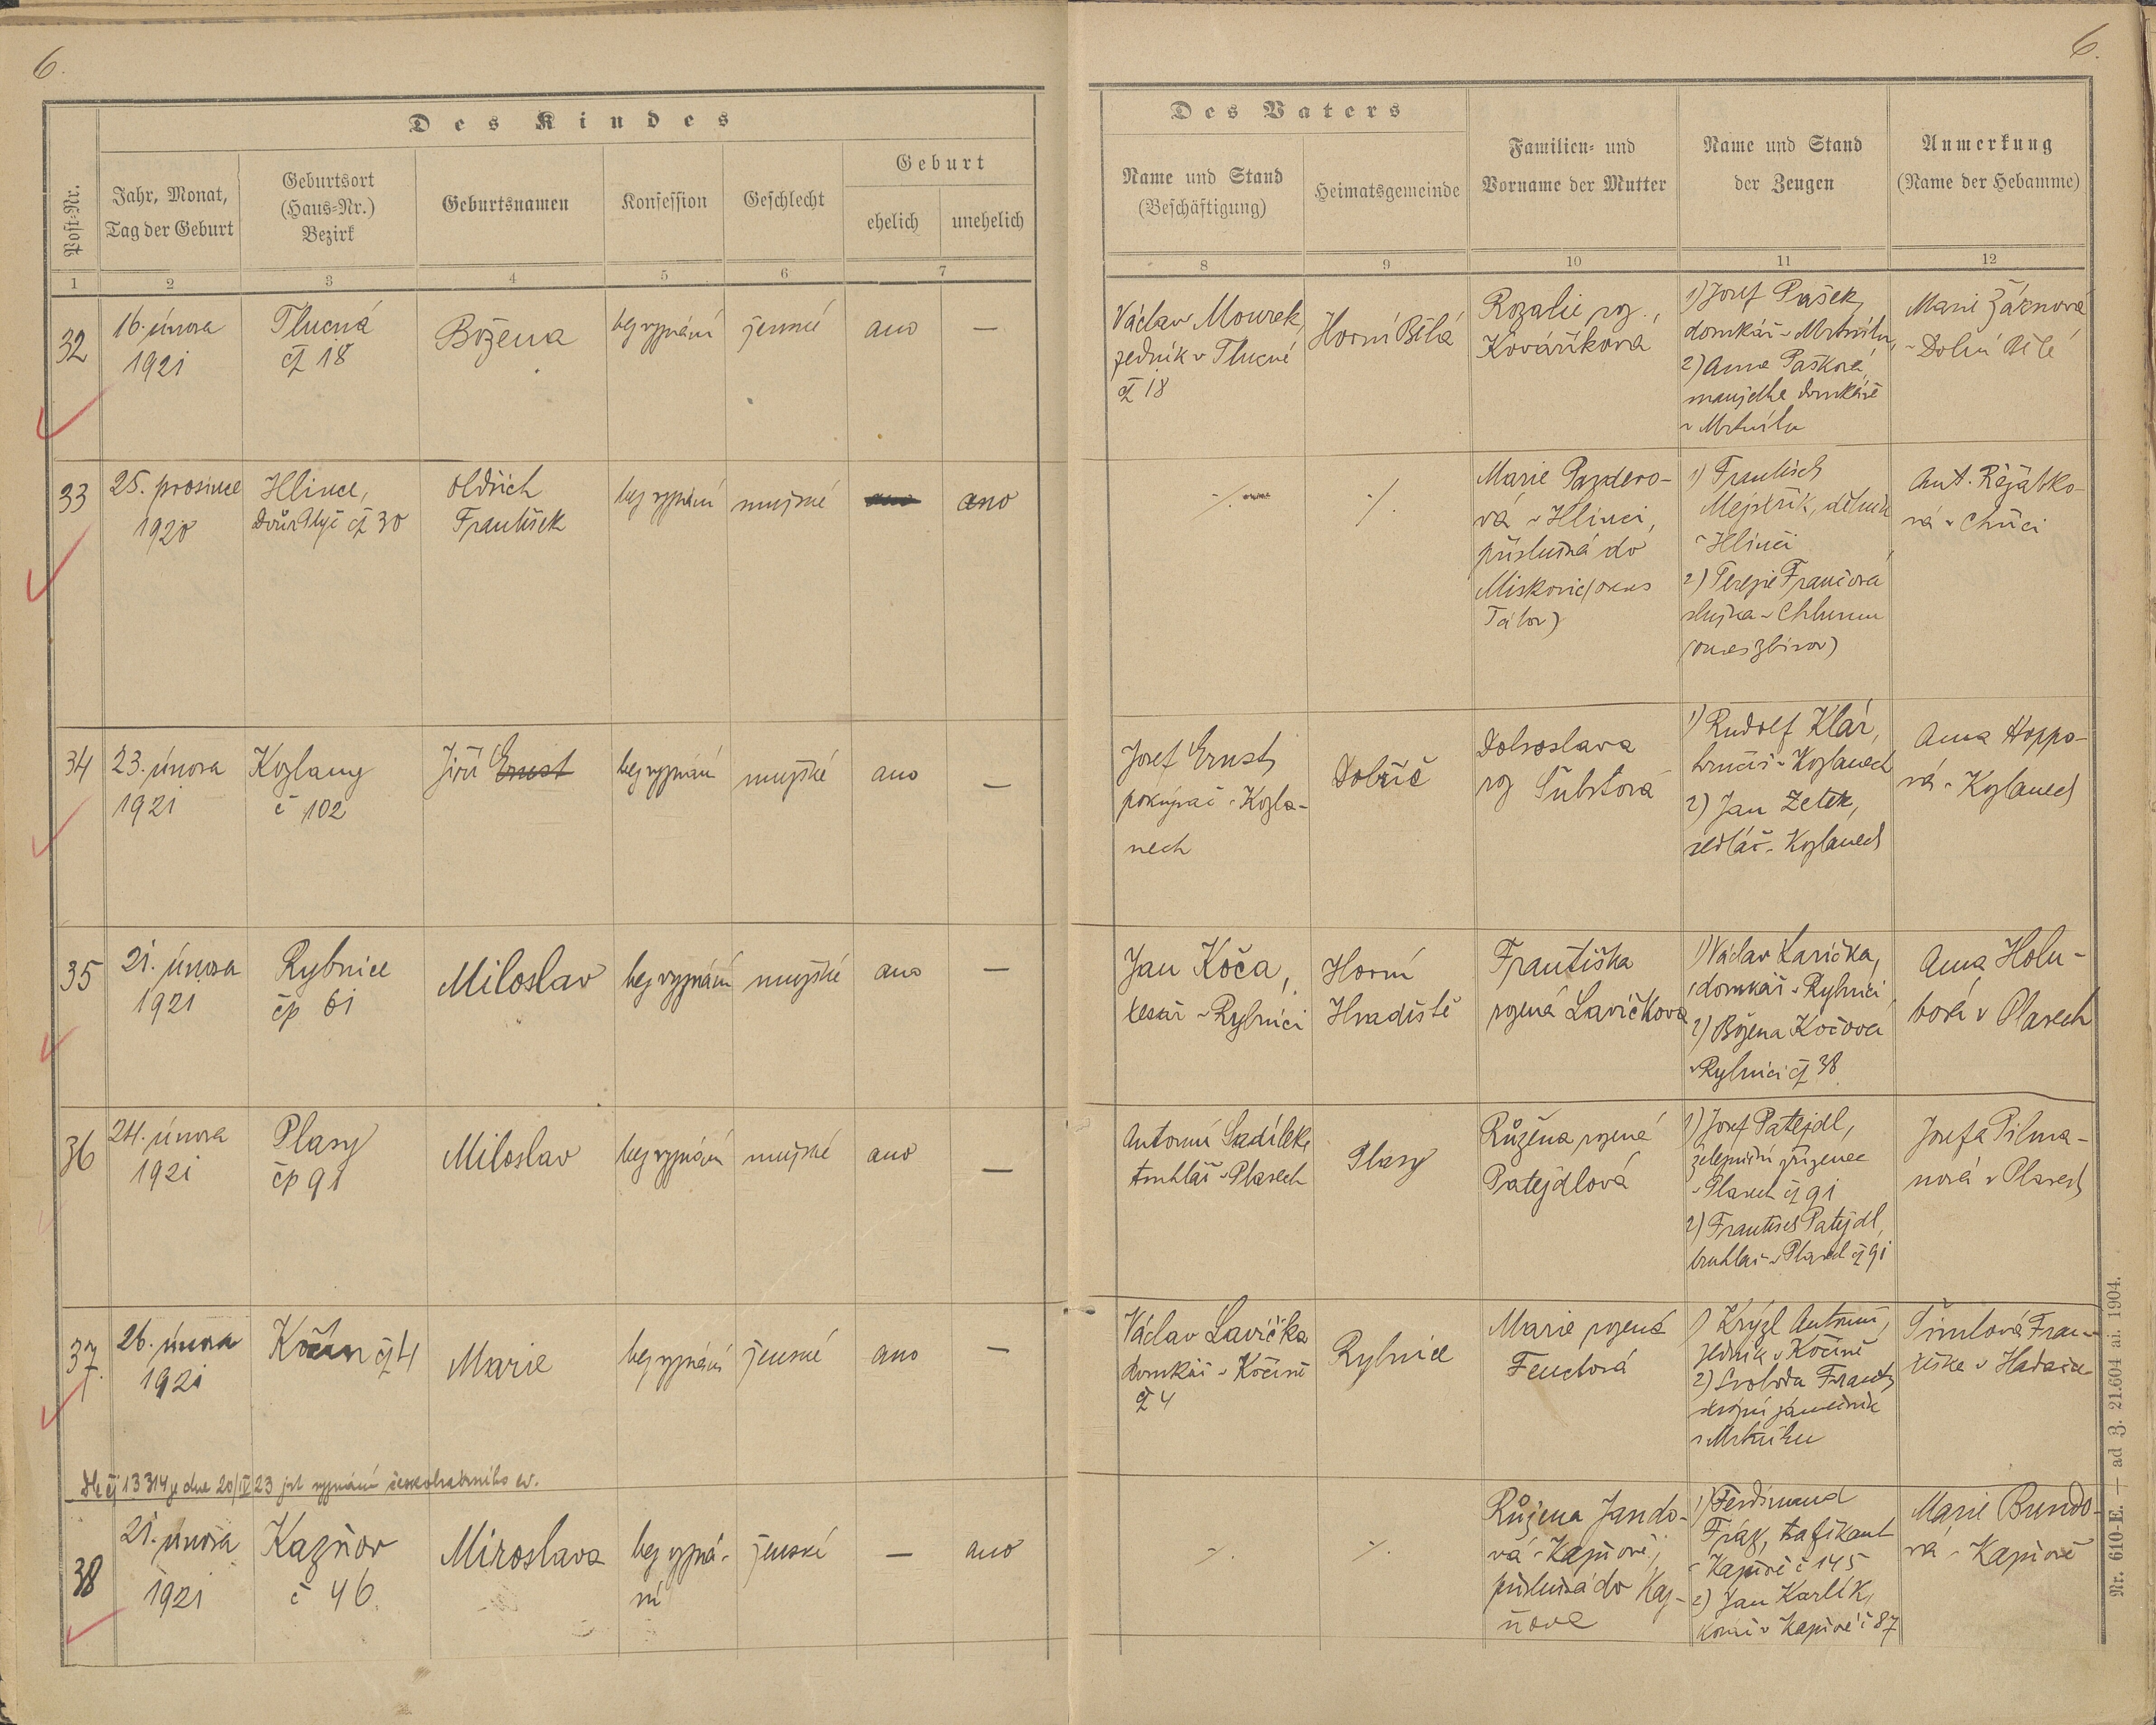 6.
6.
Des Kindes
Post-Nr.
Jahr, Monat,
Tag der Geburt
Geburtsort
(Haus-Nr.)
Bezirk
Geburtsnamen
Konfession
Geschlecht
Geburt
ehelich
unehelich
Des Vaters
Name und Stand
(Beschäftigung)
Heimatsgemeinde
Familien- und
Vorname der Mutter
Name und Stand
der Zeugen
Anmerkung
(Name der Hebamme)
1 2 3 4 5 6 7 8 9 10 11 12
32
16. února
1921
Tlucná
čp 18
Božena
bez vyznání
ženské
ano
—
Václav Mourek,
zedník v Tlucné
čp 18
Horní Bělá
Rozalie roz.,
Kováříková
1) Josef Pašek,
domkář v Mrtníku,
2) Anna Pašková,
manželka domkáře
v Mrtníku
Marie
v Dolní Bělé
33
25. prosince
1920
Hlince,
Dvůr čp 30
Oldřich
František
bez vyznání
mužské
ano
ano
·/.
·/.
Marie Pazdero-
vá v Hlinci,
příslušná do
Miskovic (okres
Tábor)
1) František
Mejstřík, dělník
v Hlinci
2) Terezie Frančová
služka v Chlumu
(okres Zbirov)
Ant. Režábko-
vá v Chříci
34
23. února
1921
Kozlany
č 102
Jiří Ernest
bez vyznání
mužské
ano
—
Josef Ernest,
v Kozla-
nech
Dobříč
Dobroslava
roz Šubrtová
1) Rudolf Klár,
hrnčíř v Kozlanech
2) Jan Zetek,
sedlář v Kozlanech
Anna Hoppo-
vá v Kozlanech
35
21. února
1921
Rybnice
čp 61
Miloslav
bez vyznání
mužské
ano
—
Jan Koča,
tesař v Rybnici
Horní
Hradiště
Františka
rozená Lavičková
1) Václav Lavička,
domkář v Rybnici
2) Božena Kočová
v Rybnici čp 38
Anna Holu-
bová v Plasech
36
24. února
1921
Plasy
čp 91
Miloslav
bez vyznání
mužské
ano
—
Antonín Sadílek,
truhlář v Plasech
Plasy
Růžena rozená
Patejdlová
1) Josef Patejdl,
železniční zřízenec
v Plasech čp 91
2) František Patejdl,
truhlář v Plasech čp 91
Josefa Pilma-
nová v Plasech
37.
26. února
1921
Kočín čp 4
Marie
bez vyznání
ženské
ano
—
Václav Lavička
domkář v Kočíně
čp 4
Rybnice
Marie rozená
Fenclová
1) Krýzl Antonín,
zedník v Kočíně
2) Svoboda Frant.,
strojní zámečník
v Mrtníku
Fran-
tiška v
Dle čj 13314 ze dne 20/IV 23 jest vyznání českobratrského ev.
38
21. února
1921
Kaznov
č 46.
Miroslava
bez vyzná-
ní
ženské
—
ano
·/.
·/.
Růžena Jando-
vá v Kaznově,
příslušná do Kaz-
nova
1) Ferdinand
Fráz, trafikant
v Kaznově č 145
2) Jan Karlík,
v Kaznově č 87
Marie Bundo-
vá v Kaznově
Nr. 610-E. — ad Z. 21.604 ai. 1904.